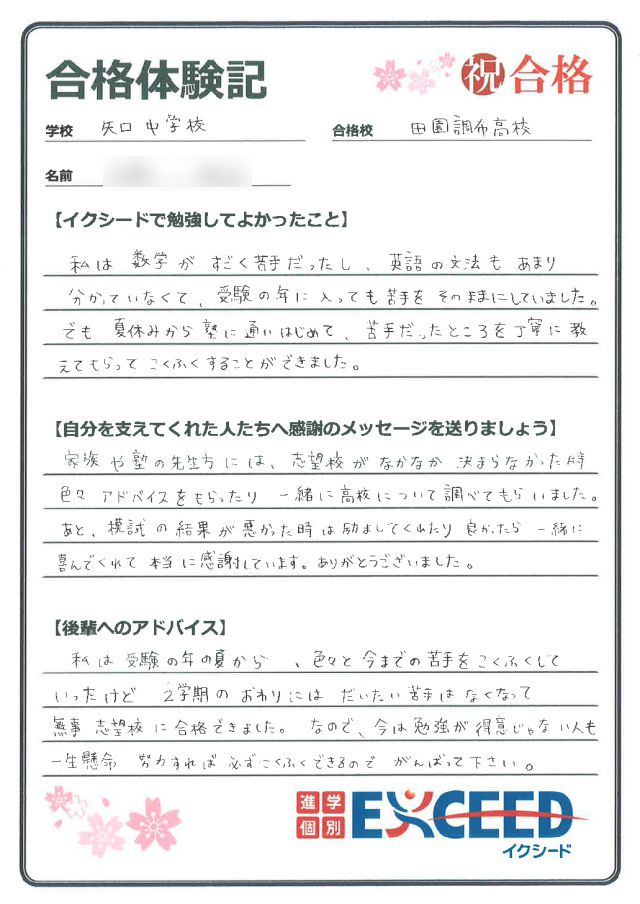 合格体験記
祝 合格
学校 矢口中学校
合格校 田園調布高校
名前
【イクシードで勉強してよかったこと】
私は 数学が すごく苦手だったし、英語の文法も あまり
分かっていなくて、受験の年に入っても苦手を そのままにしていました。
でも 夏休みから 塾に通いはじめて、苦手だったところを丁寧に教
えてもらって こくふくすることができました。
【自分を支えてくれた人たちへ感謝のメッセージを送りましょう】
家族や塾の先生方には、志望校がなかなか 決まらなかった時
色々 アドバイスをもらったり 一緒に高校について調べてもらいました。
あと、模試の結果が悪かった時は励ましてくれたり 良かったら 一緒に
喜んでくれて 本当に感謝しています。ありがとうございました。
【後輩へのアドバイス】
私は 受験の年の夏から 、色々と今までの苦手をこくふくして
いったけど 2学期の おわりには だいたい苦手は なくなって
無事 志望校に合格できました。 なので、今は勉強が得意じゃない人も
一生懸命 努力すれば 必ずこくふくできるので がんばって下さい。
進学
個別
EXCEED
イクシード